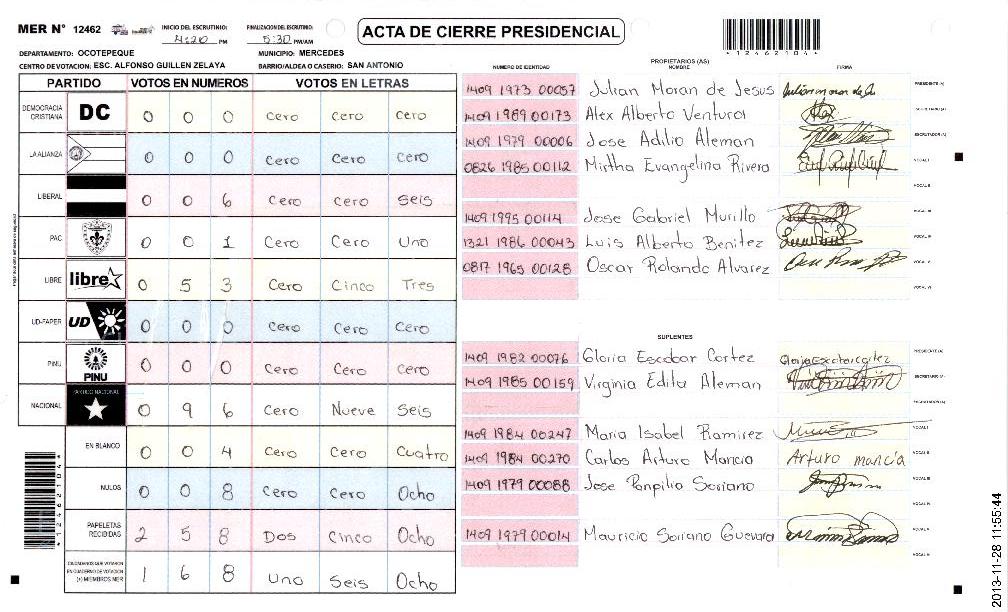 MER N° 12462
INICIO DEL ESCRUTINIO: 4:20 PM
FINALIZACION DEL ESCRUTINIO: 5:30 PM/AM
ACTA DE CIERRE PRESIDENCIAL
*12462104*
DEPARTAMENTO: OCOTEPEQUE
MUNICIPIO: MERCEDES
CENTRO DE VOTACION: ESC. ALFONSO GUILLEN ZELAYA
BARRIO/ALDEA O CASERIO: SAN ANTONIO
PARTIDO VOTOS EN NUMEROS VOTOS EN LETRAS
DEMOCRACIA CRISTIANA DC 0 0 0 Cero Cero Cero
LA ALIANZA 0 0 0 Cero Cero Cero
LIBERAL 0 0 6 Cero Cero Seis
PAC 0 0 1 Cero Cero Uno
LIBRE libre 0 5 3 Cero Cinco Tres
UD-FAPER UD 0 0 0 Cero Cero Cero
PINU PINU 0 0 0 Cero Cero Cero
NACIONAL PARTIDO NACIONAL 0 9 6 Cero Nueve Seis
EN BLANCO 0 0 4 Cero Cero Cuatro
NULOS 0 0 8 Cero Cero Ocho
PAPELETAS RECIBIDAS 2 5 8 Dos Cinco Ocho
CIUDADANOS QUE VOTARON EN CUADERNO DE VOTACION (+) MIEMBROS MER 1 6 8 Uno Seis Ocho
*12462104*
PROPIETARIOS (AS)
NUMERO DE IDENTIDAD NOMBRE FIRMA
1409 1973 00057 Julian Moran de Jesus PRESIDENTE (A)
1409 1989 00173 Alex Alberto Ventura SECRETARIO (A)
1409 1979 00006 Jose Adilio Aleman ESCRUTADOR (A)
0826 1985 00112 Mirtha Evangelina Rivera VOCAL I
VOCAL II
1409 1995 00114 Jose Gabriel Murillo VOCAL III
1321 1986 00043 Luis Alberto Benitez VOCAL IV
0817 1965 00128 Oscar Rolando Alvarez VOCAL V
VOCAL VI
SUPLENTES
1409 1982 00076 Gloria Escobar Cortez PRESIDENTE (A)
1409 1985 00159 Virginia Edita Aleman SECRETARIO (A)
ESCRUTADOR (A)
1409 1984 00247 Maria Isabel Ramirez VOCAL I
1409 1984 00270 Carlos Arturo Mancia Arturo mancía VOCAL II
1409 1979 00088 Jose Ponpilio Soriano VOCAL III
VOCAL IV
1409 1979 00014 Mauricio Soriano Guevara VOCAL V
VOCAL VI
2013-11-28 11:55:44